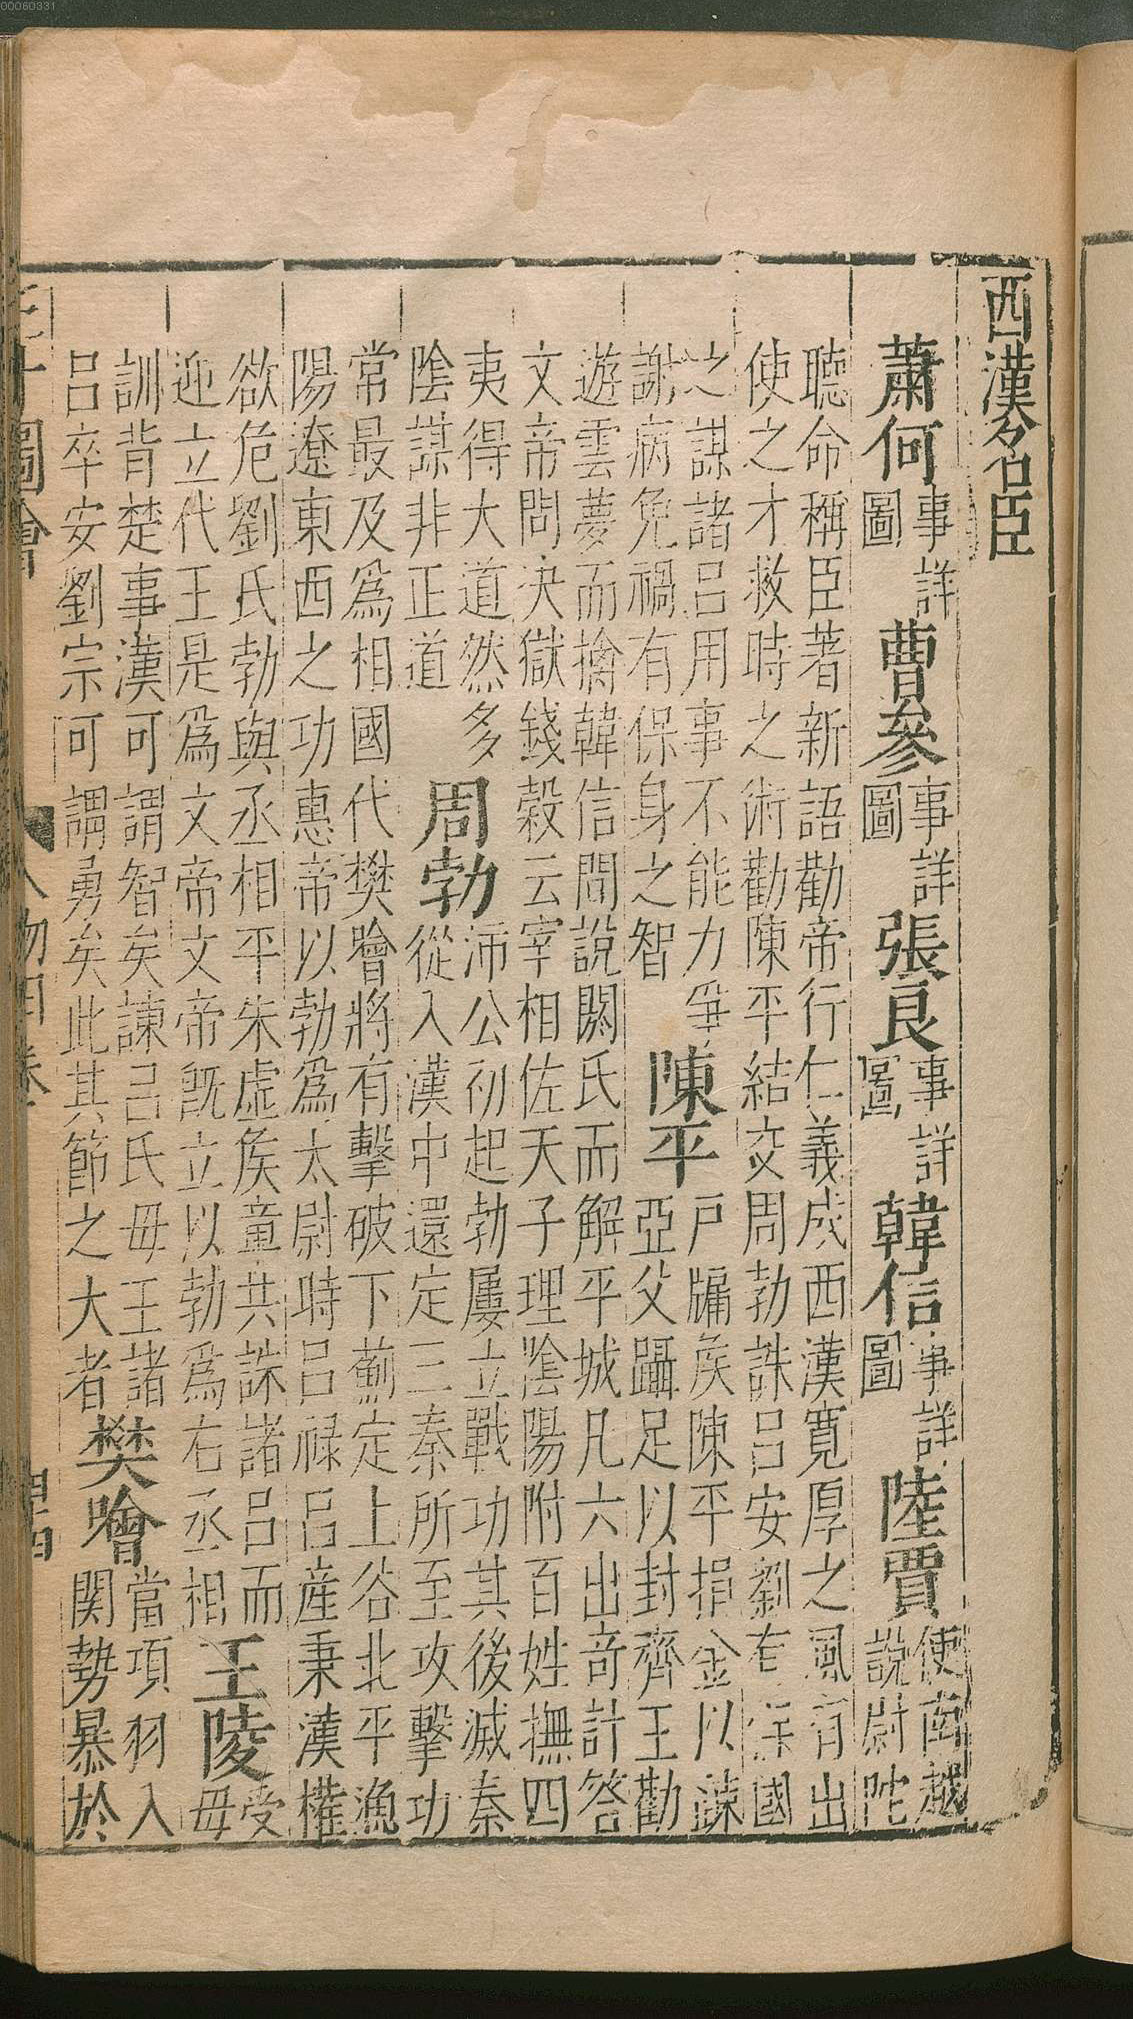 00060331
西漢名臣
蕭何事詳圖曹參事詳圖張良事詳圖韓信事詳圖陸賈使南越說尉陀
聽命稱臣著新語勸帝行仁義成西漢寬厚之風有出
使之才救時之術勸陳平結交周勃誅呂安劉有保國
之謀諸呂用事不能力爭
謝病免禍有保身之智陳平戶牖侯陳平捐金以諫
亞父躡足以封齊王勸
遊雲夢而擒韓信間說閼氏而解平城凡六出奇計答
文帝問決獄錢穀云宰相佐天子理陰陽附百姓撫四
夷得大道然多
陰謀非正道周勃沛公初起勃屢立戰功其後滅秦
從入漢中還定三秦所至攻擊功
常最及爲相國代樊噲將有擊破下薊定上谷北平漁
陽遼東西之功惠帝以勃爲太尉時呂祿呂產秉漢權
欲危劉氏勃與丞相平朱虛侯童共誅諸呂而
迎立代王是爲文帝文帝旣立以勃爲右丞相王陵受
母
訓背楚事漢可謂智矣諫呂氏毋王諸
呂卒安劉宗可謂勇矣此其節之大者樊噲當項羽入
関勢暴於
三才圖會 人物四卷